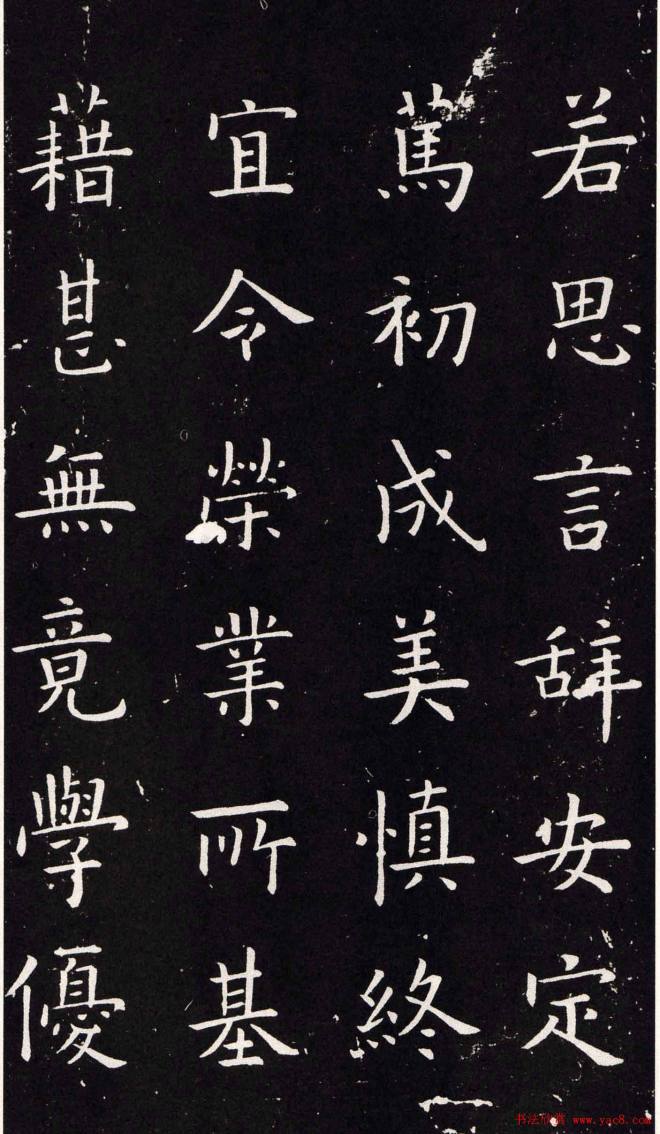 若思言辭安定
篤初成美慎終
宜令榮業所基
藉甚無竟學優
书法欣赏 www.yac8.com